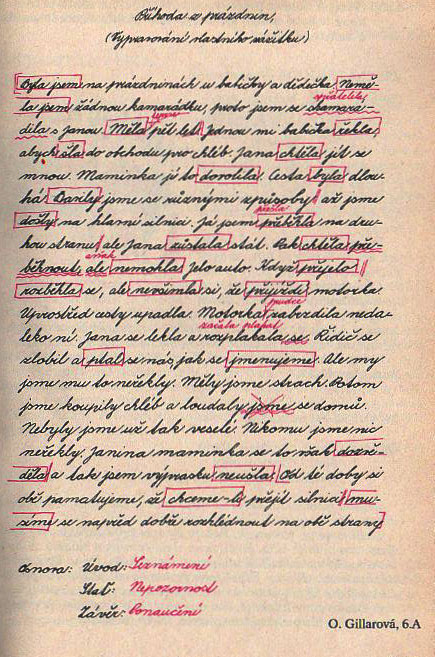 Příhoda z prázdnin,
(Vypravování vlastního zážitku)
Byla jsem na prázdninách u babičky a dědečka. Nemě-
la jsem žádnou kamarádku, proto jsem se skamará-
přátelila
dila s Janou. Měla pět let. Jednou mi babička řekla,
teprve
abych šla do obchodu pro chléb. Jana chtěla jít se
mnou. Maminka jí to dovolila. Cesta byla dlou-
há. Bavily jsme se různými způsoby, až jsme
došly na hlavní silnici. Já jsem přeběhla na dru-
přešla
hou stranu, ale Jana zůstala stát. Pak chtěla pře-
běhnout, ale nemohla. Jelo auto. Když přejelo
však
rozběhla se, ale nevšimla si, že přijíždí motorka.
Uprostřed cesty upadla. Motorka zabrzdila neda-
prudce
leko ní. Jana se lekla a rozplakala se. Řidič se
začala plakat
zlobil a ptal se nás, jak se jmenujeme. Ale my
jsme mu to neřekly. Měly jsme strach. Potom
jsme koupily chléb a loudaly jsme se domů.
Nebyly jsme už tak veselé. Nikomu jsme nic
neřekly. Janina maminka se to však dozvě-
děla a tak jsem výprasku neušla. Od té doby si
obě pamatujeme, že chceme-li přejít silnici, mu-
síme se napřed dobře rozhlédnout na obě strany.
Osnova: Úvod: Seznámení
Stať: Nepozornost
Závěr: Ponaučení
O. Gillarová, 6.A